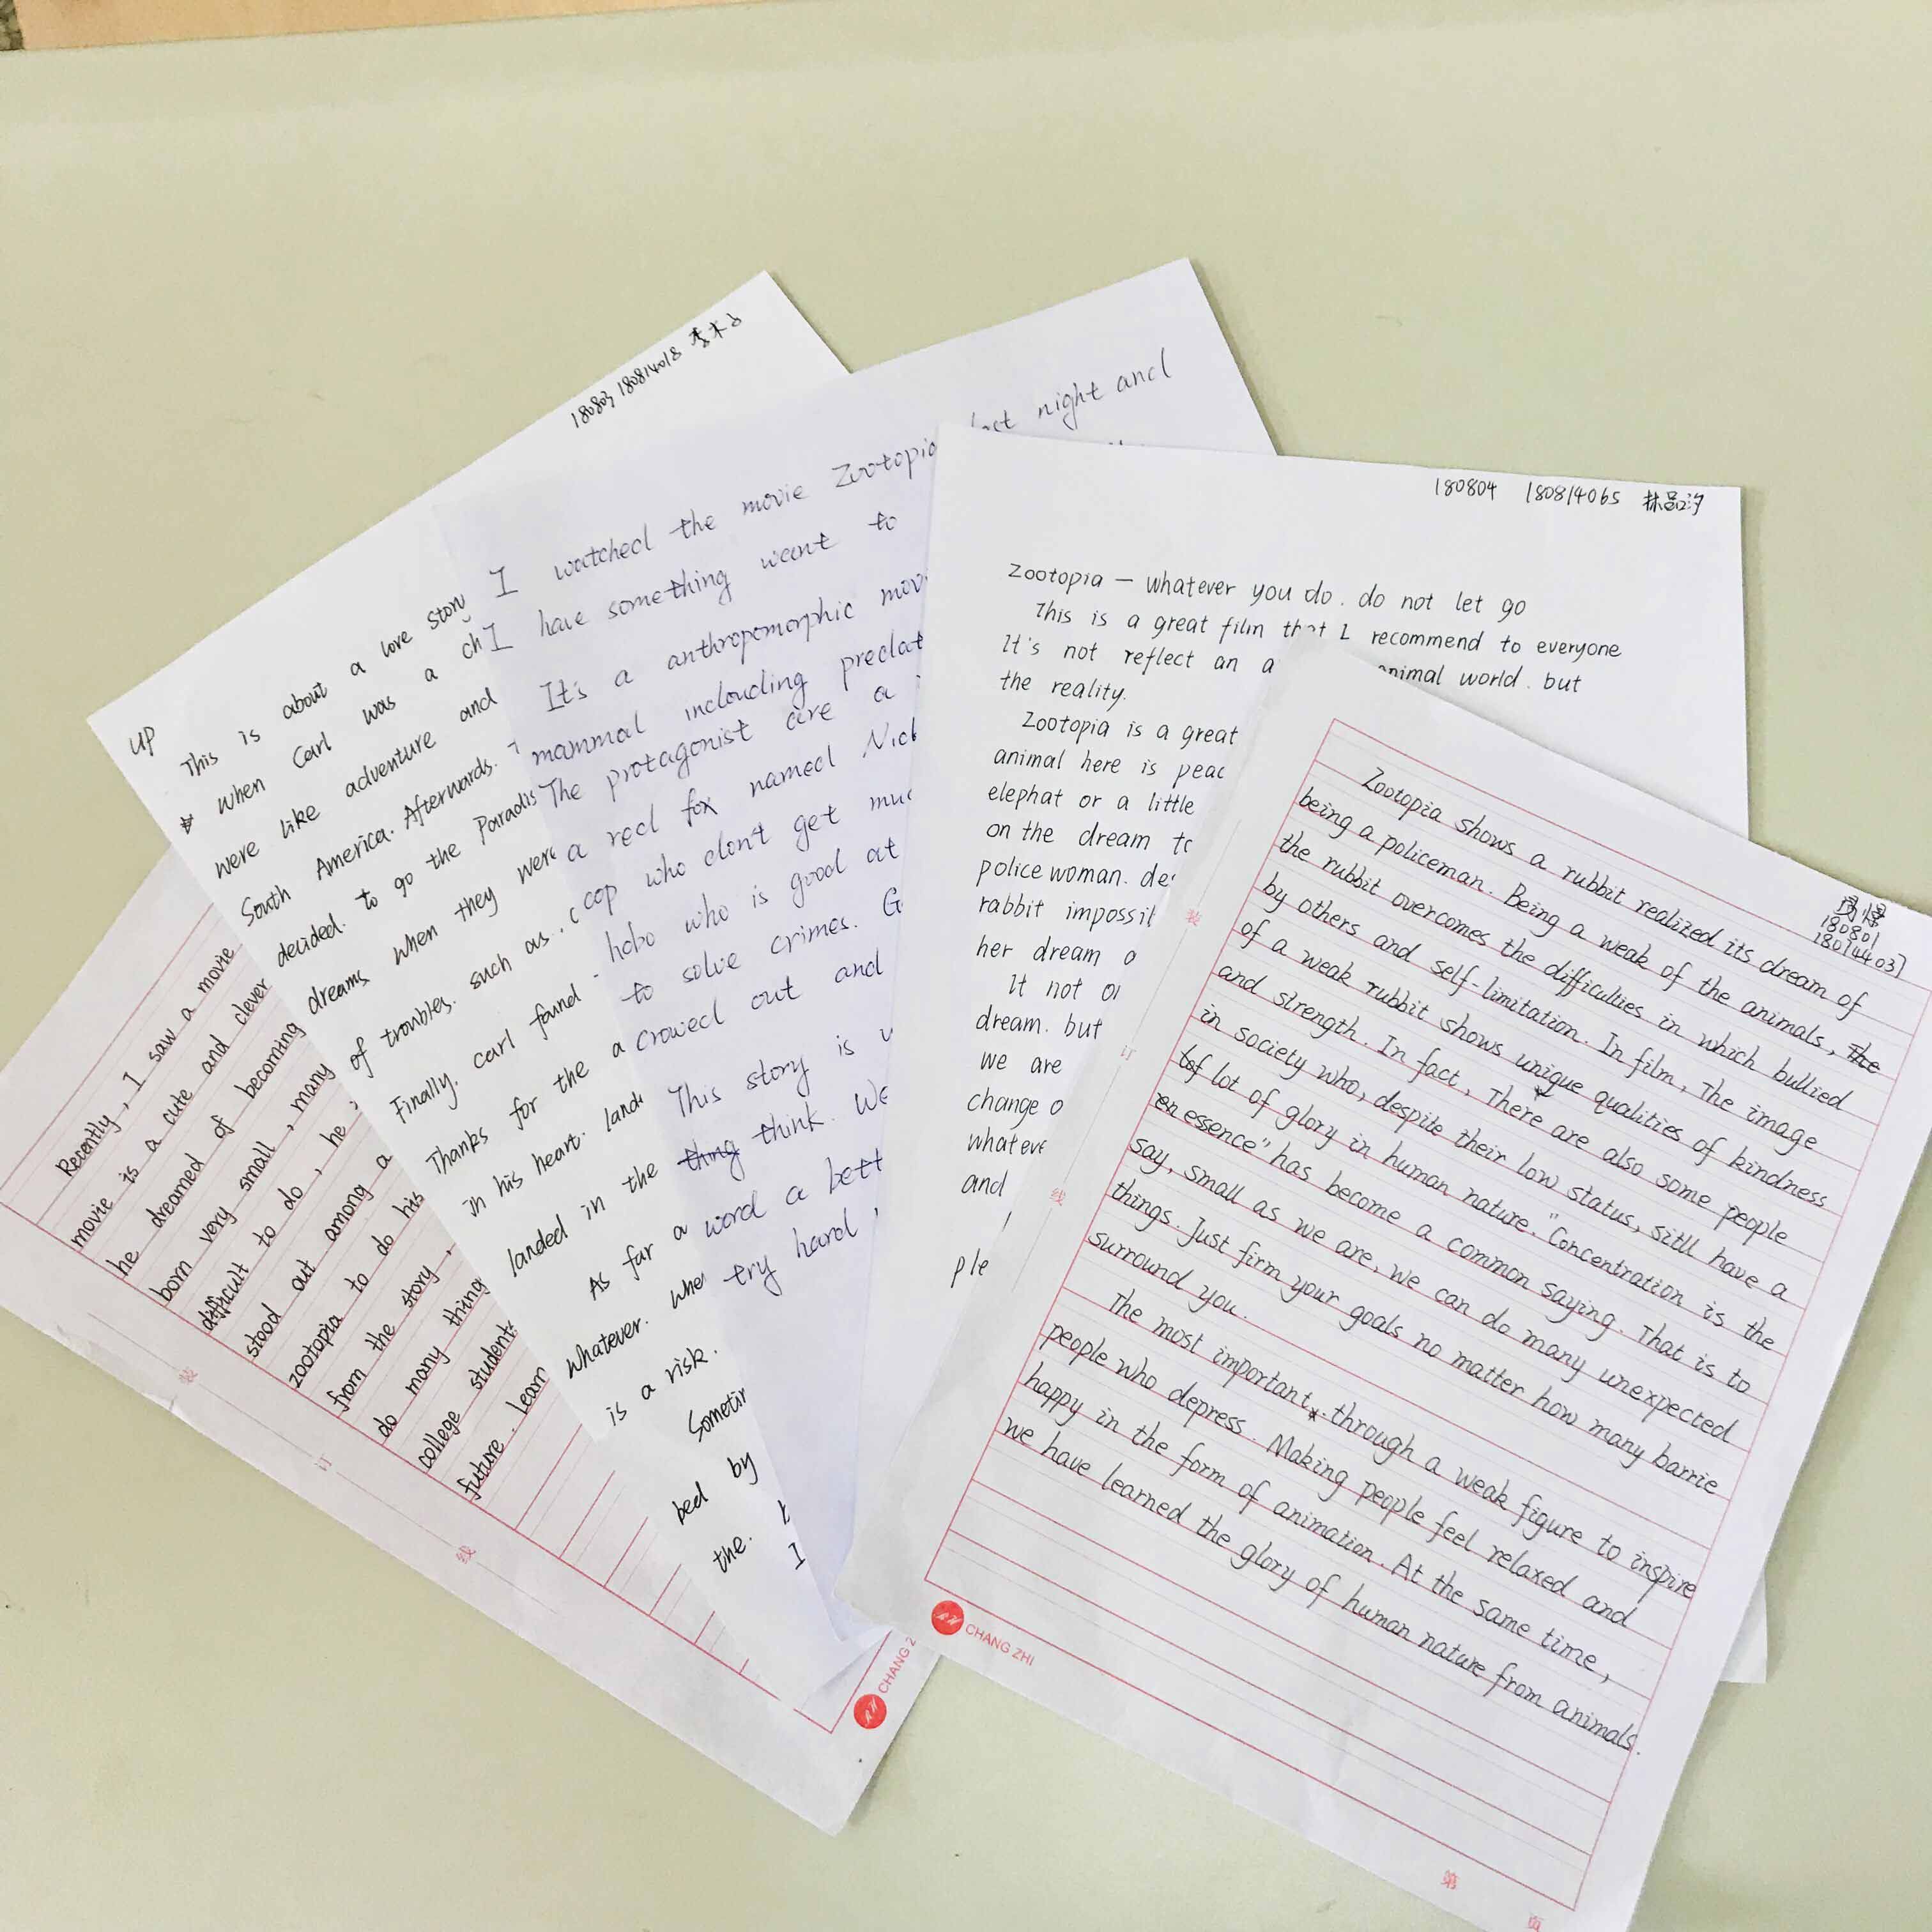 Recently, I saw a movie
movie is a cute and clever
he dreamed of becoming
born very small, many
difficult to do, he
stood out among a
zootopia to do his
from the story,
do many thing
college student
future. Learn
装
订
线
CHANG Z
180803 180814018
UP
This is about a love story
when Carl was a ch
were like adventure and
South America. Afterwards.
decided. to go the Paradis
dreams when they were
of troubles. such as.
Finally. carl found
Thanks for the a
in his heart. land
landed in the
As far a
whatever. whe
is a risk.
Sometim
ped by
the.
I
I watched the movie Zootopia last night and
I have something want to
It's a anthropomorphic mov
mammal inclouding predat
The protagonist are a
a red fox named Nick
cop who don't get muc
hobo who is good at
to solve crimes. G
crowed out and
This story is
thing think. We
word a bett
try hard
180804 180814065
Zootopia — whatever you do. do not let go
This is a great film that I recommend to everyone
It's not reflect an a animal world. but
the reality.
Zootopia is a great
animal here is peac
elephat or a little
on the dream to
police woman. des
rabbit impossil
her dream o
It not or
dream. but
we are
change o
whateve
and
ple
180801
180144037
Zootopia shows a rubbit realized its dream of
being a policeman. Being a weak of the animals, the
the rubbit overcomes the difficulties in which bullied
by others and self-limitation. In film, The image
of a weak rubbit shows unique qualities of kindness
and strength. In fact, There are also some people
in society who, despite their low status, sitll have a
lof lot of glory in human nature. "Concentration is the
en essence" has become a common saying. That is to
say, small as we are, we can do many unexpected
things. Just firm your goals no matter how many barrie
surround you.
The most important, through a weak figure to inspire
people who depress. Making people feel relaxed and
happy in the form of animation. At the same time,
we have learned the glory of human nature from animals.
装
订
线
CHANG ZHI
第
页